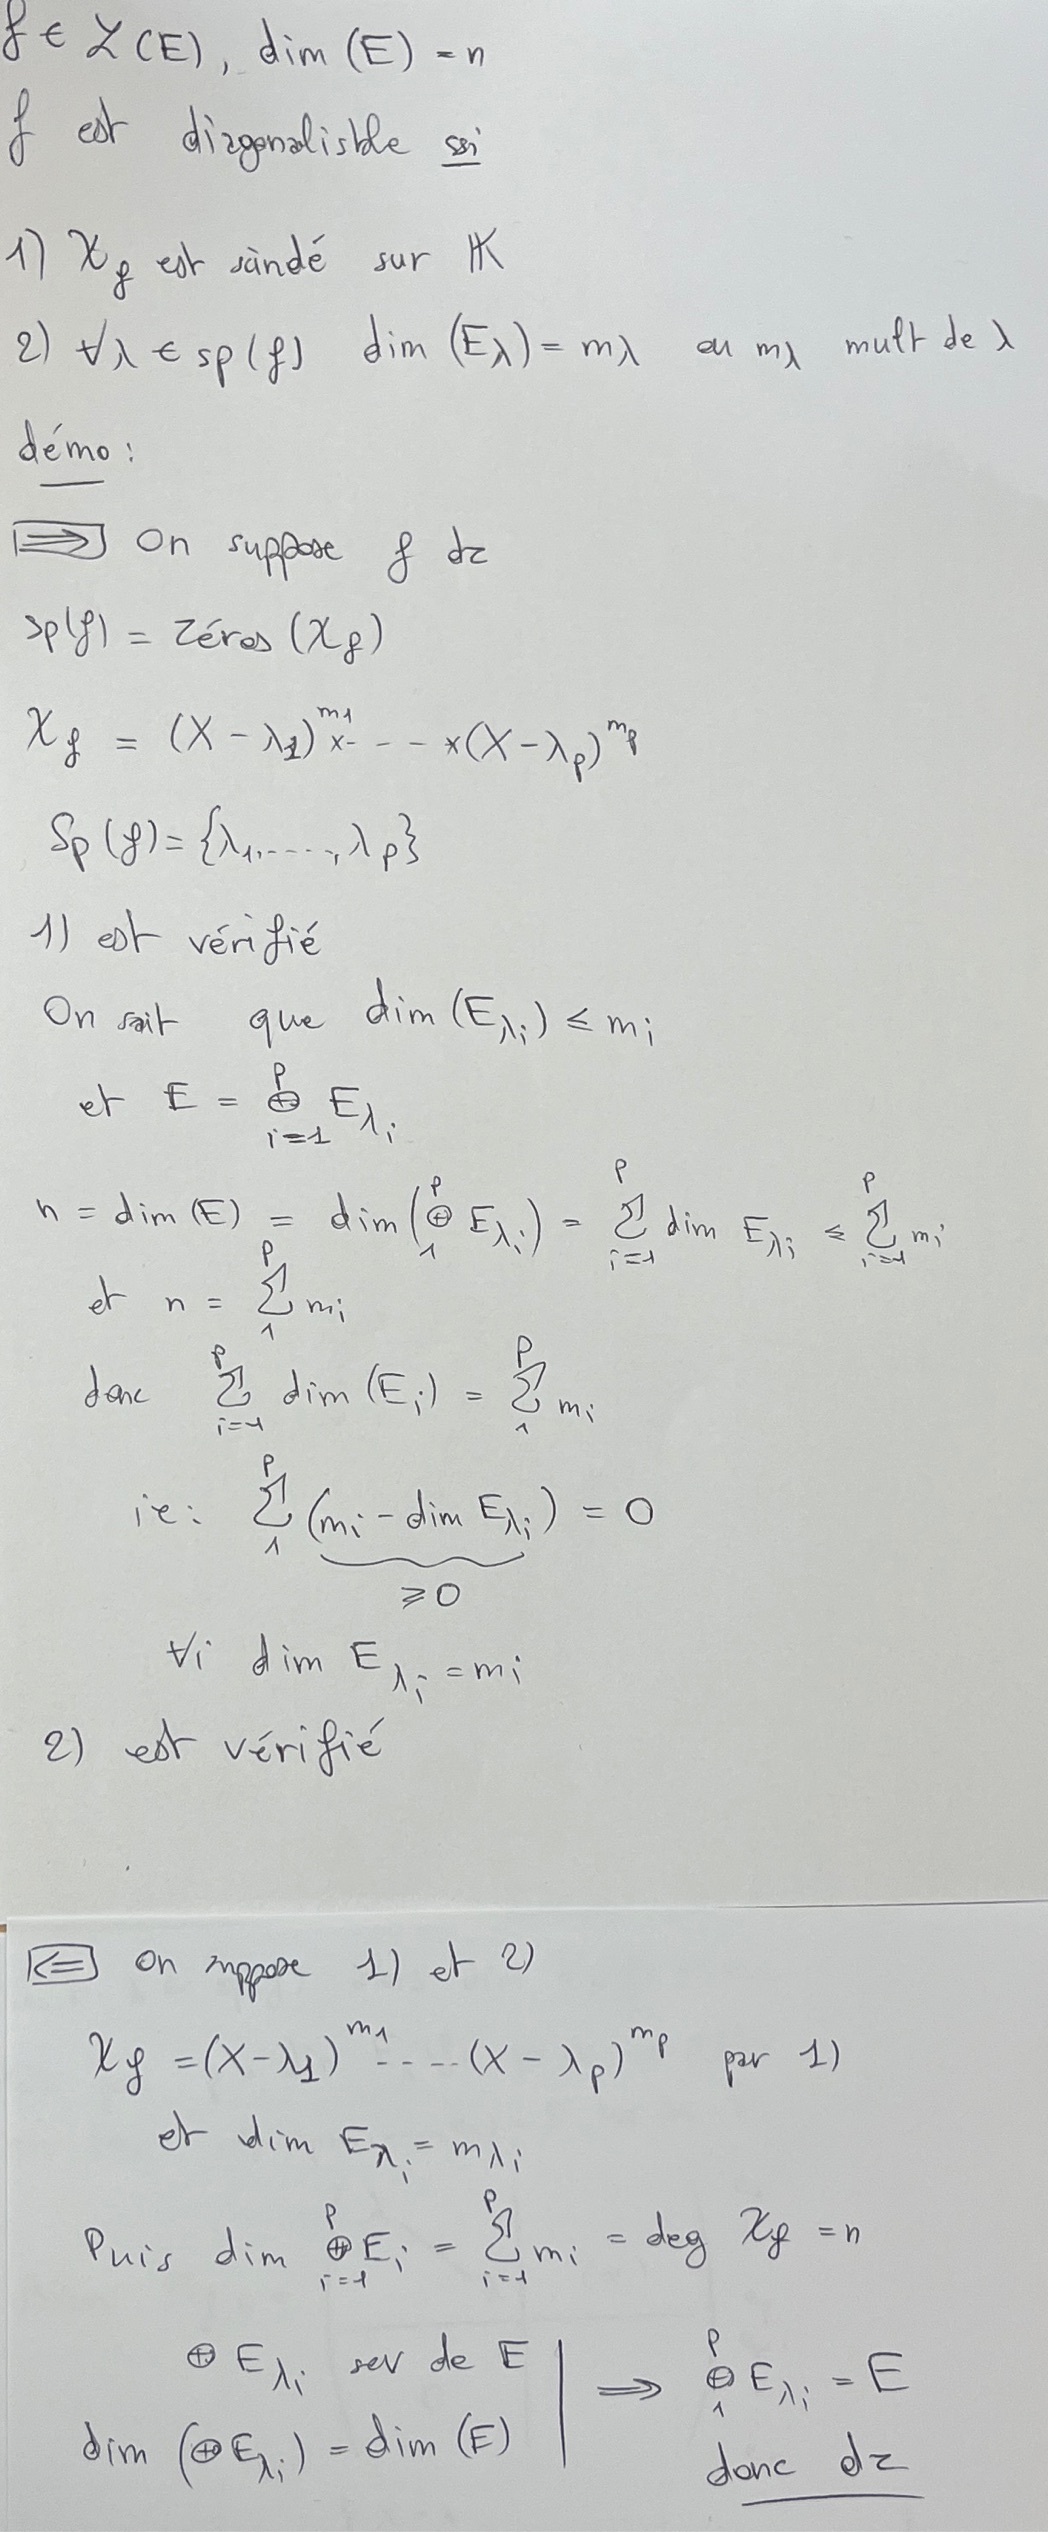 f ∈ ℒ(E), dim (E) = n
f est diagonalisble ssi
1) χ_f est scindé sur 𝕂
2) ∀λ ∈ sp(f) dim (E_λ) = m_λ ou m_λ mult de λ
démo :
⟹ On suppose f dz
Sp(f) = Zéros (χ_f)
χ_f = (X - λ_1)^{m_1} × - - - × (X - λ_p)^{m_p}
Sp (f) = {λ_1, ....., λ_p}
1) est vérifié
On sait que dim (E_{λ_i}) ≤ m_i
et E = ⊕_{i=1}^{p} E_{λ_i}
n = dim (E) = dim (⊕_{1}^{p} E_{λ_i}) = ∑_{i=1}^{p} dim E_{λ_i} ≤ ∑_{i=1}^{p} m_i
et n = ∑_{1}^{p} m_i
donc ∑_{i=1}^{p} dim (E_i) = ∑_{1}^{p} m_i
ie : ∑_{1}^{p} (m_i - dim E_{λ_i}) = 0
≥ 0
∀i dim E_{λ_i} = m_i
2) est vérifié
⟸ On suppose 1) et 2)
χ_f = (X - λ_1)^{m_1} ..... (X - λ_p)^{m_p} par 1)
et dim E_{λ_i} = m_{λ_i}
Puis dim ⊕_{i=1}^{p} E_i = ∑_{i=1}^{p} m_i = deg χ_f = n
⊕ E_{λ_i} sev de E
dim (⊕ E_{λ_i}) = dim (E)
⟹ ⊕_{1}^{p} E_{λ_i} = E
donc dz